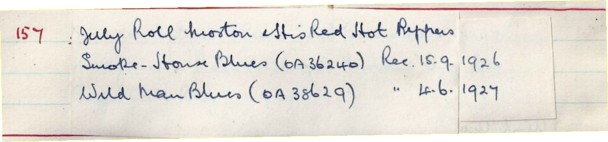 157 : July Roll Morton & His Red Hot Peppers
Smoke-House Blues (OA36240) Rec. 15.9.1926
Wild Man Blues (OA 38629) " 4.6.1927